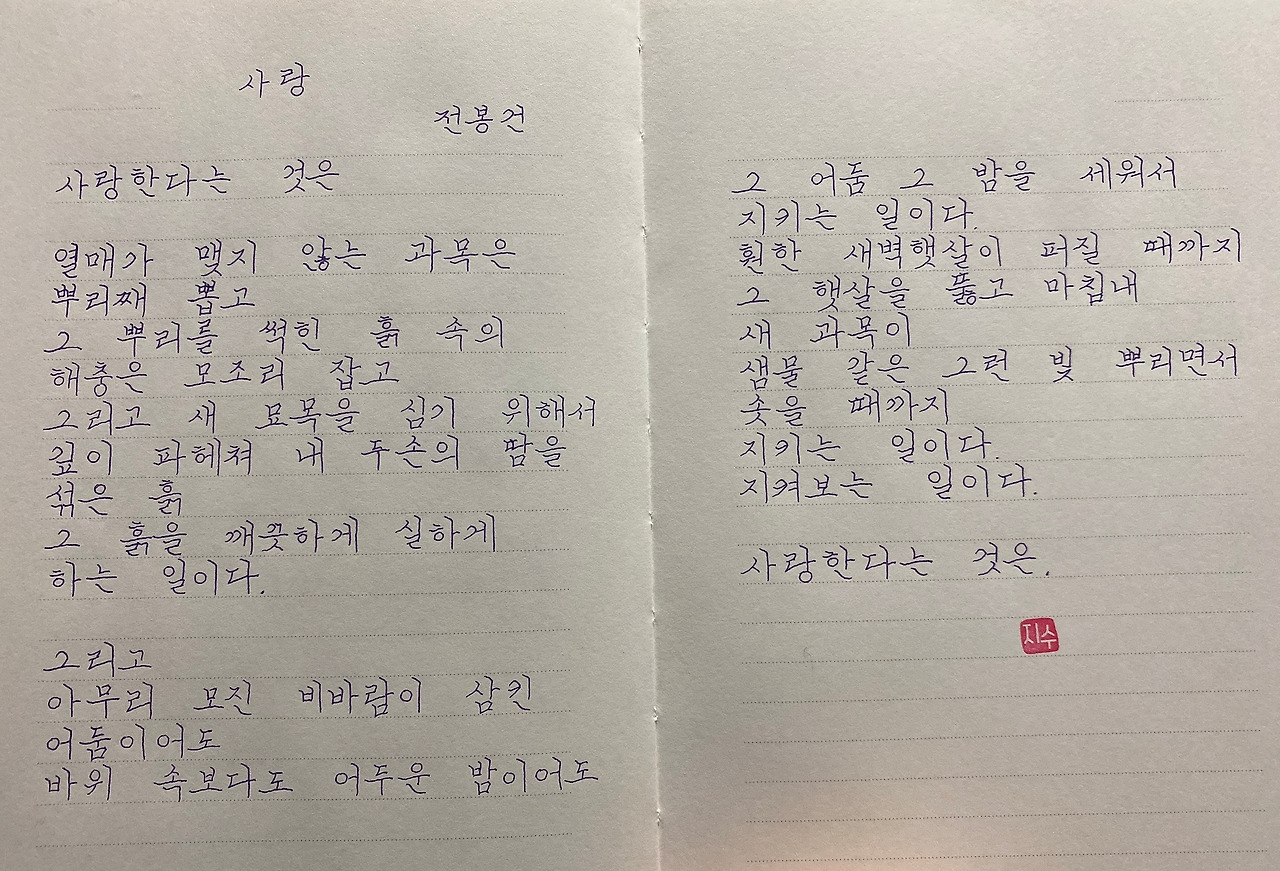 사랑
전봉건
사랑한다는 것은
열매가 맺지 않는 과목은
뿌리째 뽑고
그 뿌리를 썩힌 흙 속의
해충은 모조리 잡고
그리고 새 묘목을 심기 위해서
깊이 파헤쳐 내 두손의 땀을
섞은 흙
그 흙을 깨끗하게 실하게
하는 일이다.
그리고
아무리 모진 비바람이 삼킨
어둠이어도
바위 속보다도 어두운 밤이어도
그 어둠 그 밤을 세워서
지키는 일이다.
훤한 새벽햇살이 퍼질 때까지
그 햇살을 뚫고 마침내
새 과목이
샘물 같은 그런 빛 뿌리면서
솟을 때까지
지키는 일이다.
지켜보는 일이다.
사랑한다는 것은.
지수